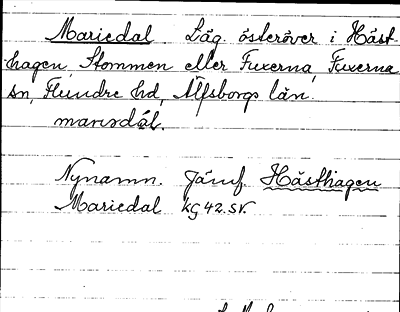 Mariedal Läg. österöver i Häst-
hagen, Stommen eller Fuxerna, Fuxerna
sn, Flundre hd, Älfsborgs län.
marɩɑdáɫ.
Nynamn. Jämf. Hästhagen
Mariedal KG 42. SV.